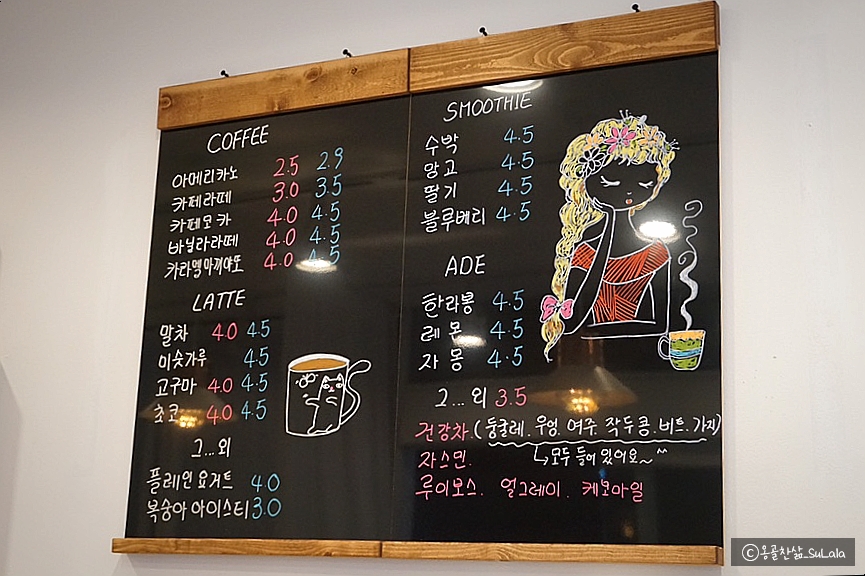 COFFEE
아메리카노 2.5 2.9
카페라떼 3.0 3.5
카페모카 4.0 4.5
바닐라라떼 4.0 4.5
카라멜마끼아또 4.0 4.5
LATTE
말차 4.0 4.5
미숫가루 4.5
고구마 4.0 4.5
초코 4.0 4.5
그...외
플레인 요거트 4.0
복숭아 아이스티 3.0
SMOOTHIE
수박 4.5
망고 4.5
딸기 4.5
블루베리 4.5
ADE
한라봉 4.5
레몬 4.5
자몽 4.5
그...외 3.5
건강차.(둥굴레.우엉.여주.작두콩.비트.가지)
자스민. ↳모두 들어 있어요~^^
루이보스. 얼그레이. 케모마일
ⓒ옹골찬삶_SuLala